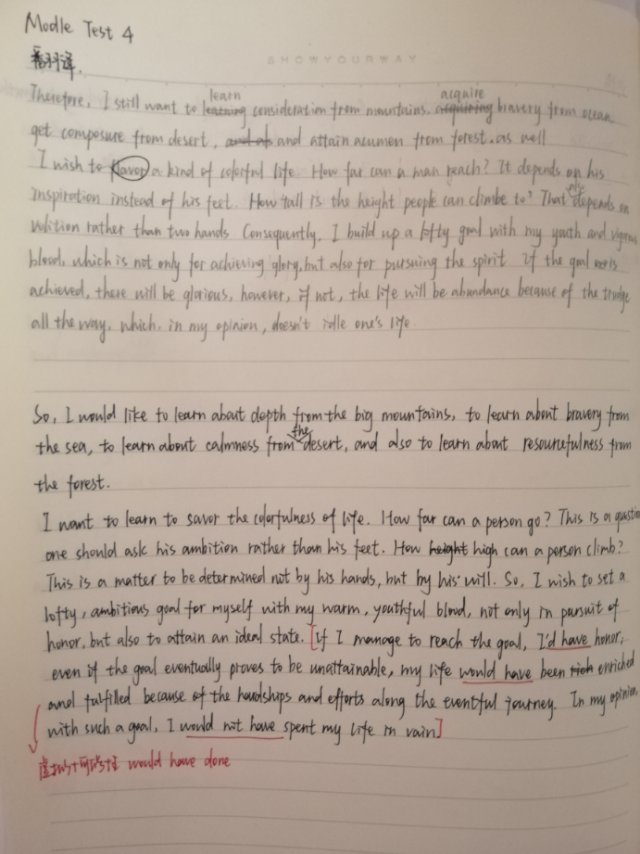 Modle Test 4
SHOWYOURWAY
翻译.
learn acquire
Therefore, I still want to learning consideration from mountains. acquiring bravery from ocean
get composure from desert, and attain acumen from forest. as well
I wish to savor a kind of colorful life. How far can a man reach? It depends on his
inspiration instead of his feet. How tall is the height people can climbe to? That depends on
volition rather than two hands Consequently, I build up a lofty goal with my youth and vigorous
blood, which is not only for achieving glory, but also for pursuing the spirit If the goal is
achieved, there will be glorious, however, if not, the life will be abundance because of the trudge
all the way. which, in my opinion, doesn't idle one's life
So, I would like to learn about depth from the big mountains, to learn about bravery from
the sea, to learn about calmness from the desert, and also to learn about resourcefulness from
the forest.
I want to learn to savor the colorfulness of life. How far can a person go? This is a question
one should ask his ambition rather than his feet. How height high can a person climb?
This is a matter to be determined not by his hands, but by his will. So, I wish to set a
lofty, ambitious goal for myself with my warm, youthful blood, not only in pursuit of
honor, but also to attain an ideal state. [If I manage to reach the goal, I'd have honor,
even if the goal eventually proves to be unattainable, my life would have been rich enriched
and fulfilled because of the hardships and efforts along the eventful journey. In my opinion,
with such a goal, I would not have spent my life in vain]
would have done